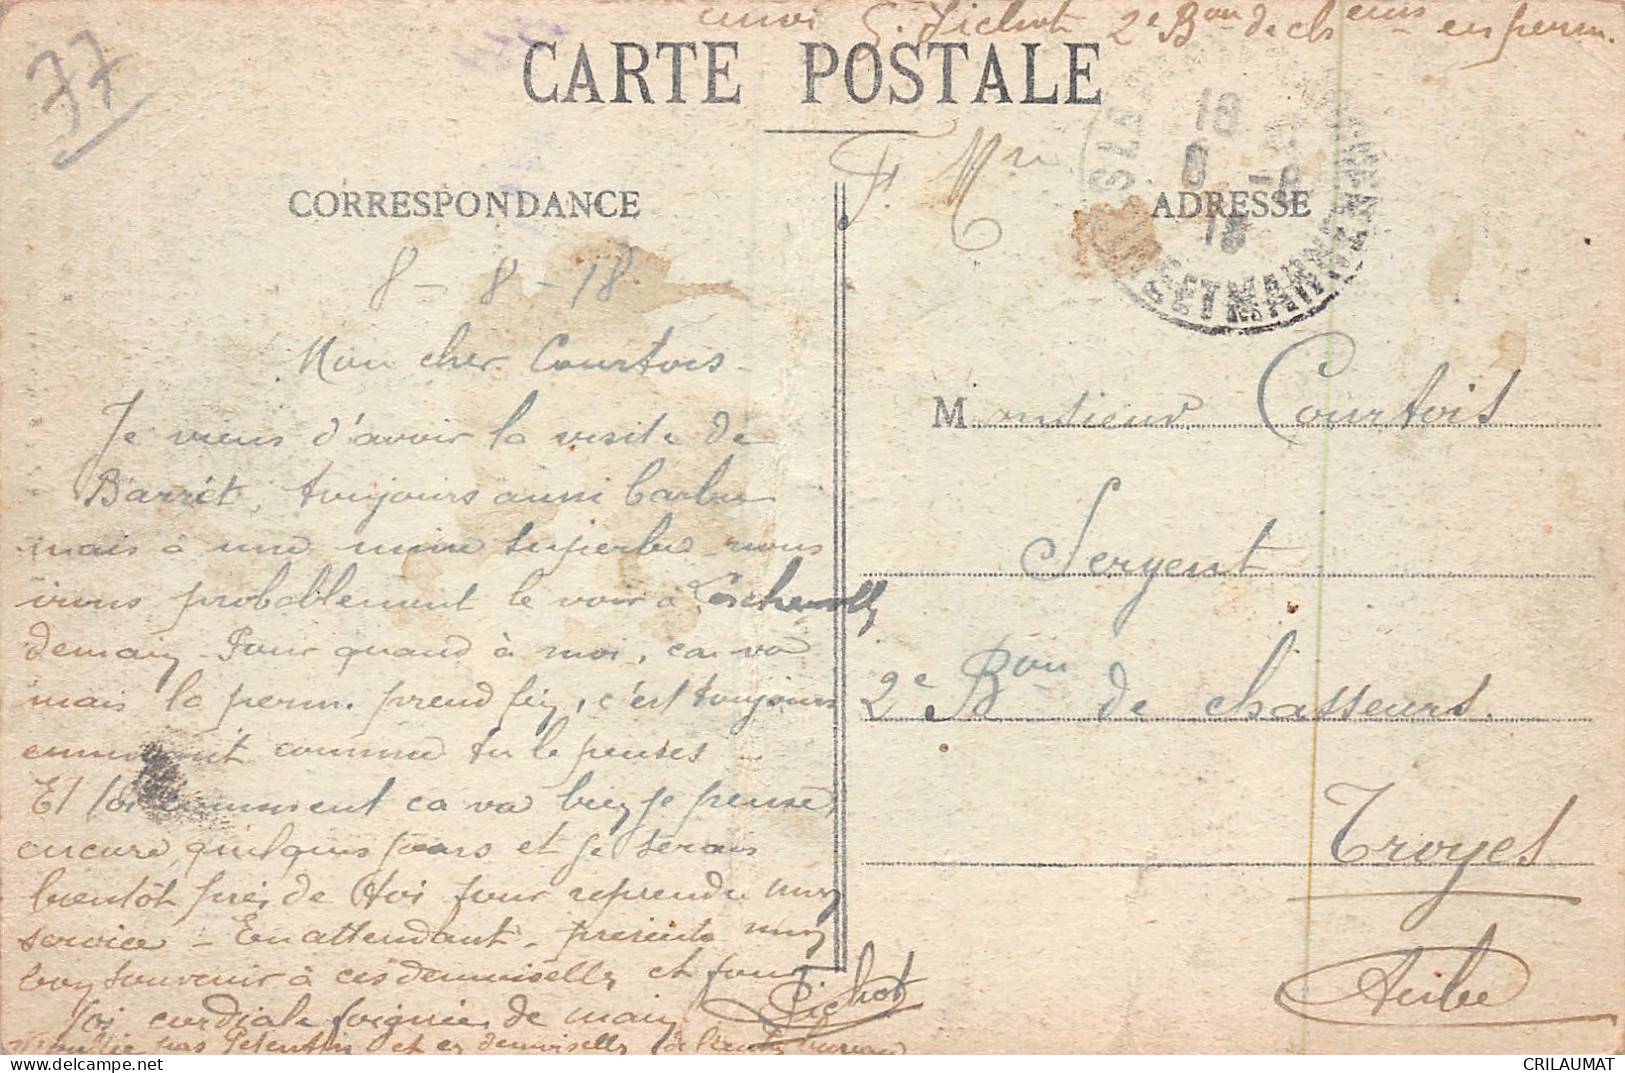 envoi G. Pichot 2e Bon de chrs en perm.
77
CARTE POSTALE
F. M.
CORRESPONDANCE
ADRESSE
18
8
18
ET MARNE
8 - 8 - 18
Mon cher Courtois -
Je viens d'avoir la visite de
Barrêt, toujours aussi barbu
mais a une mine superbe - nous
irons probablement le voir à
demain - Pour quand à moi, ca va
mais la perm. prend fin, c'est toujours
ennuyant comme tu le penses -
Et toi comment ca va bien je pense,
encore quelques jours et je serais
bientôt près de toi pour reprendre mon
service - En attendant - présente mon
bon souvenir à ces demoiselles et pour
toi cordiale poignée de main
Pichot
pas et ces demoiselles de bureau
Monsieur Courtois
Sergent
2e Bon de chasseurs.
Troyes
Aube
CRILAUMAT